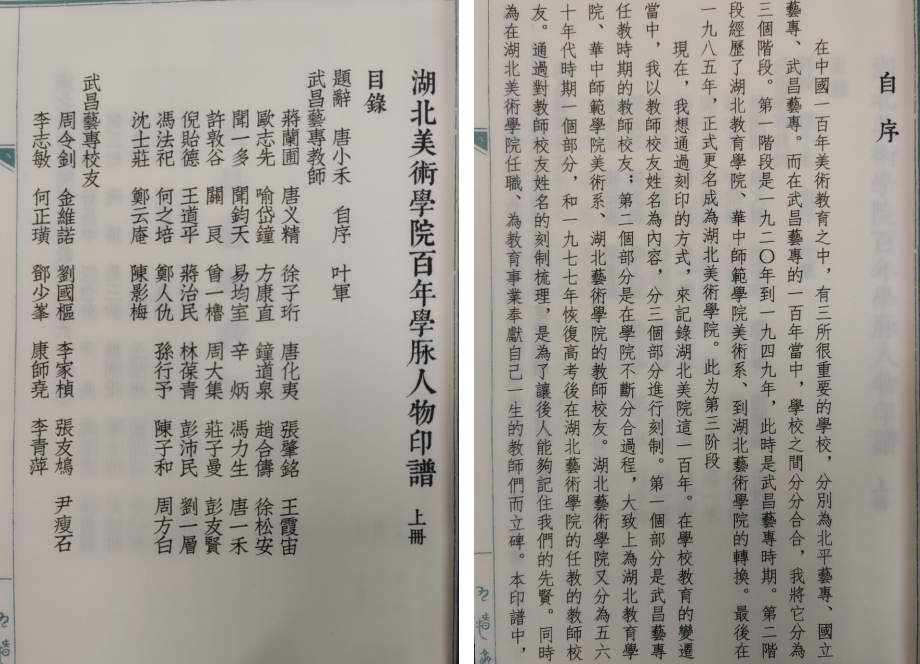 湖北美術學院百年學脉人物印譜 上冊
目錄
題辭 唐小禾 自序 叶軍
武昌藝專教師
蔣蘭圃 唐义精 徐子珩 唐化夷 張肇銘 王霞宙
歐志先 喻岱鐘 方康直 鐘道泉 趙合儔 徐松安
聞一多 聞鈞天 易均室 辛炳 馮力生 唐一禾
許敦谷 關良 曾一櫓 周大集 莊子曼 彭友賢
倪貽德 王道平 蔣治民 林葆青 彭沛民 劉一層
馮法祀 何之培 鄭人仇 孫行予 陳子和 周方白
沈士莊 鄭云庵 陳影梅
武昌藝專校友
周令釗 金維諾 劉國樞 李家楨 張友鳩 尹瘦石
李志敏 何正璜 鄧少峯 康師堯 李青萍
自序
在中國一百年美術教育之中，有三所很重要的學校，分別為北平藝專、國立
藝專、武昌藝專。而在武昌藝專的一百年當中，學校之間分分合合，我將它分為
三個階段。第一階段是一九二〇年到一九四九年，此時是武昌藝專時期。第二階
段經歷了湖北教育學院、華中師範學院美術系、到湖北藝術學院的轉換。最後在
一九八五年，正式更名成為湖北美術學院。此為第三階段
現在，我想通過刻印的方式，來記錄湖北美院這一百年。在學校教育的變遷
當中，我以教師校友姓名為內容，分三個部分進行刻制。第一個部分是武昌藝專
任教時期的教師校友；第二個部分是在學院不斷分合過程，大致上為湖北教育學
院、華中師範學院美術系、湖北藝術學院的教師校友。湖北藝術學院又分為五六
十年代時期一個部分，和一九七七年恢復高考後在湖北藝術學院的任教的教師校
友。通過對教師校友姓名的刻制梳理，是為了讓後人能夠記住我們的先賢。同時
為在湖北美術學院任職、為教育事業奉獻自己一生的教師們而立碑。本印譜中，